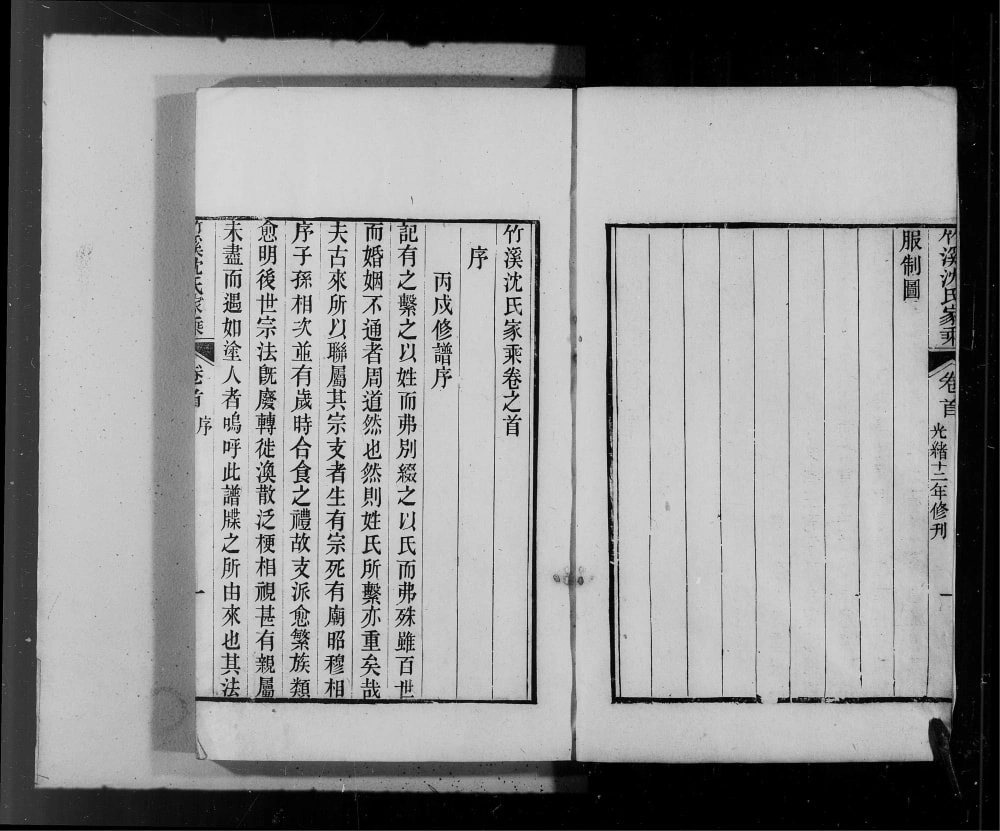 竹溪沈氏家乘
卷首
光緒十二年修刊
一
服制圖
竹溪沈氏家乘卷之首
序
丙戌修譜序
記有之繫之以姓而弗別綴之以氏而弗殊雖百世
而婚姻不通者周道然也然則姓氏所繫亦重矣哉
夫古來所以聯屬其宗支者生有宗死有廟昭穆相
序子孫相次並有歲時合食之禮故支派愈繁族類
愈明後世宗法旣廢轉徙渙散泛梗相視甚有親屬
未盡而遇如塗人者嗚呼此譜牒之所由來也其法
竹溪沈氏家乘
卷首
序
一